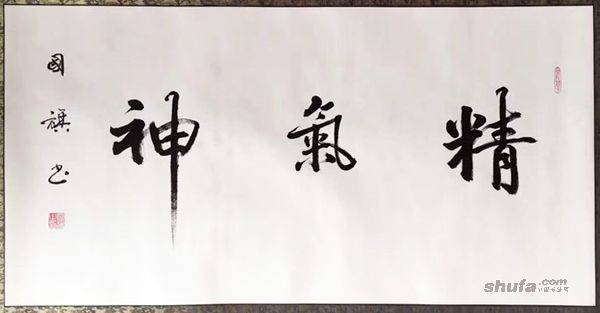 精氣神
國旗書
shufa.com